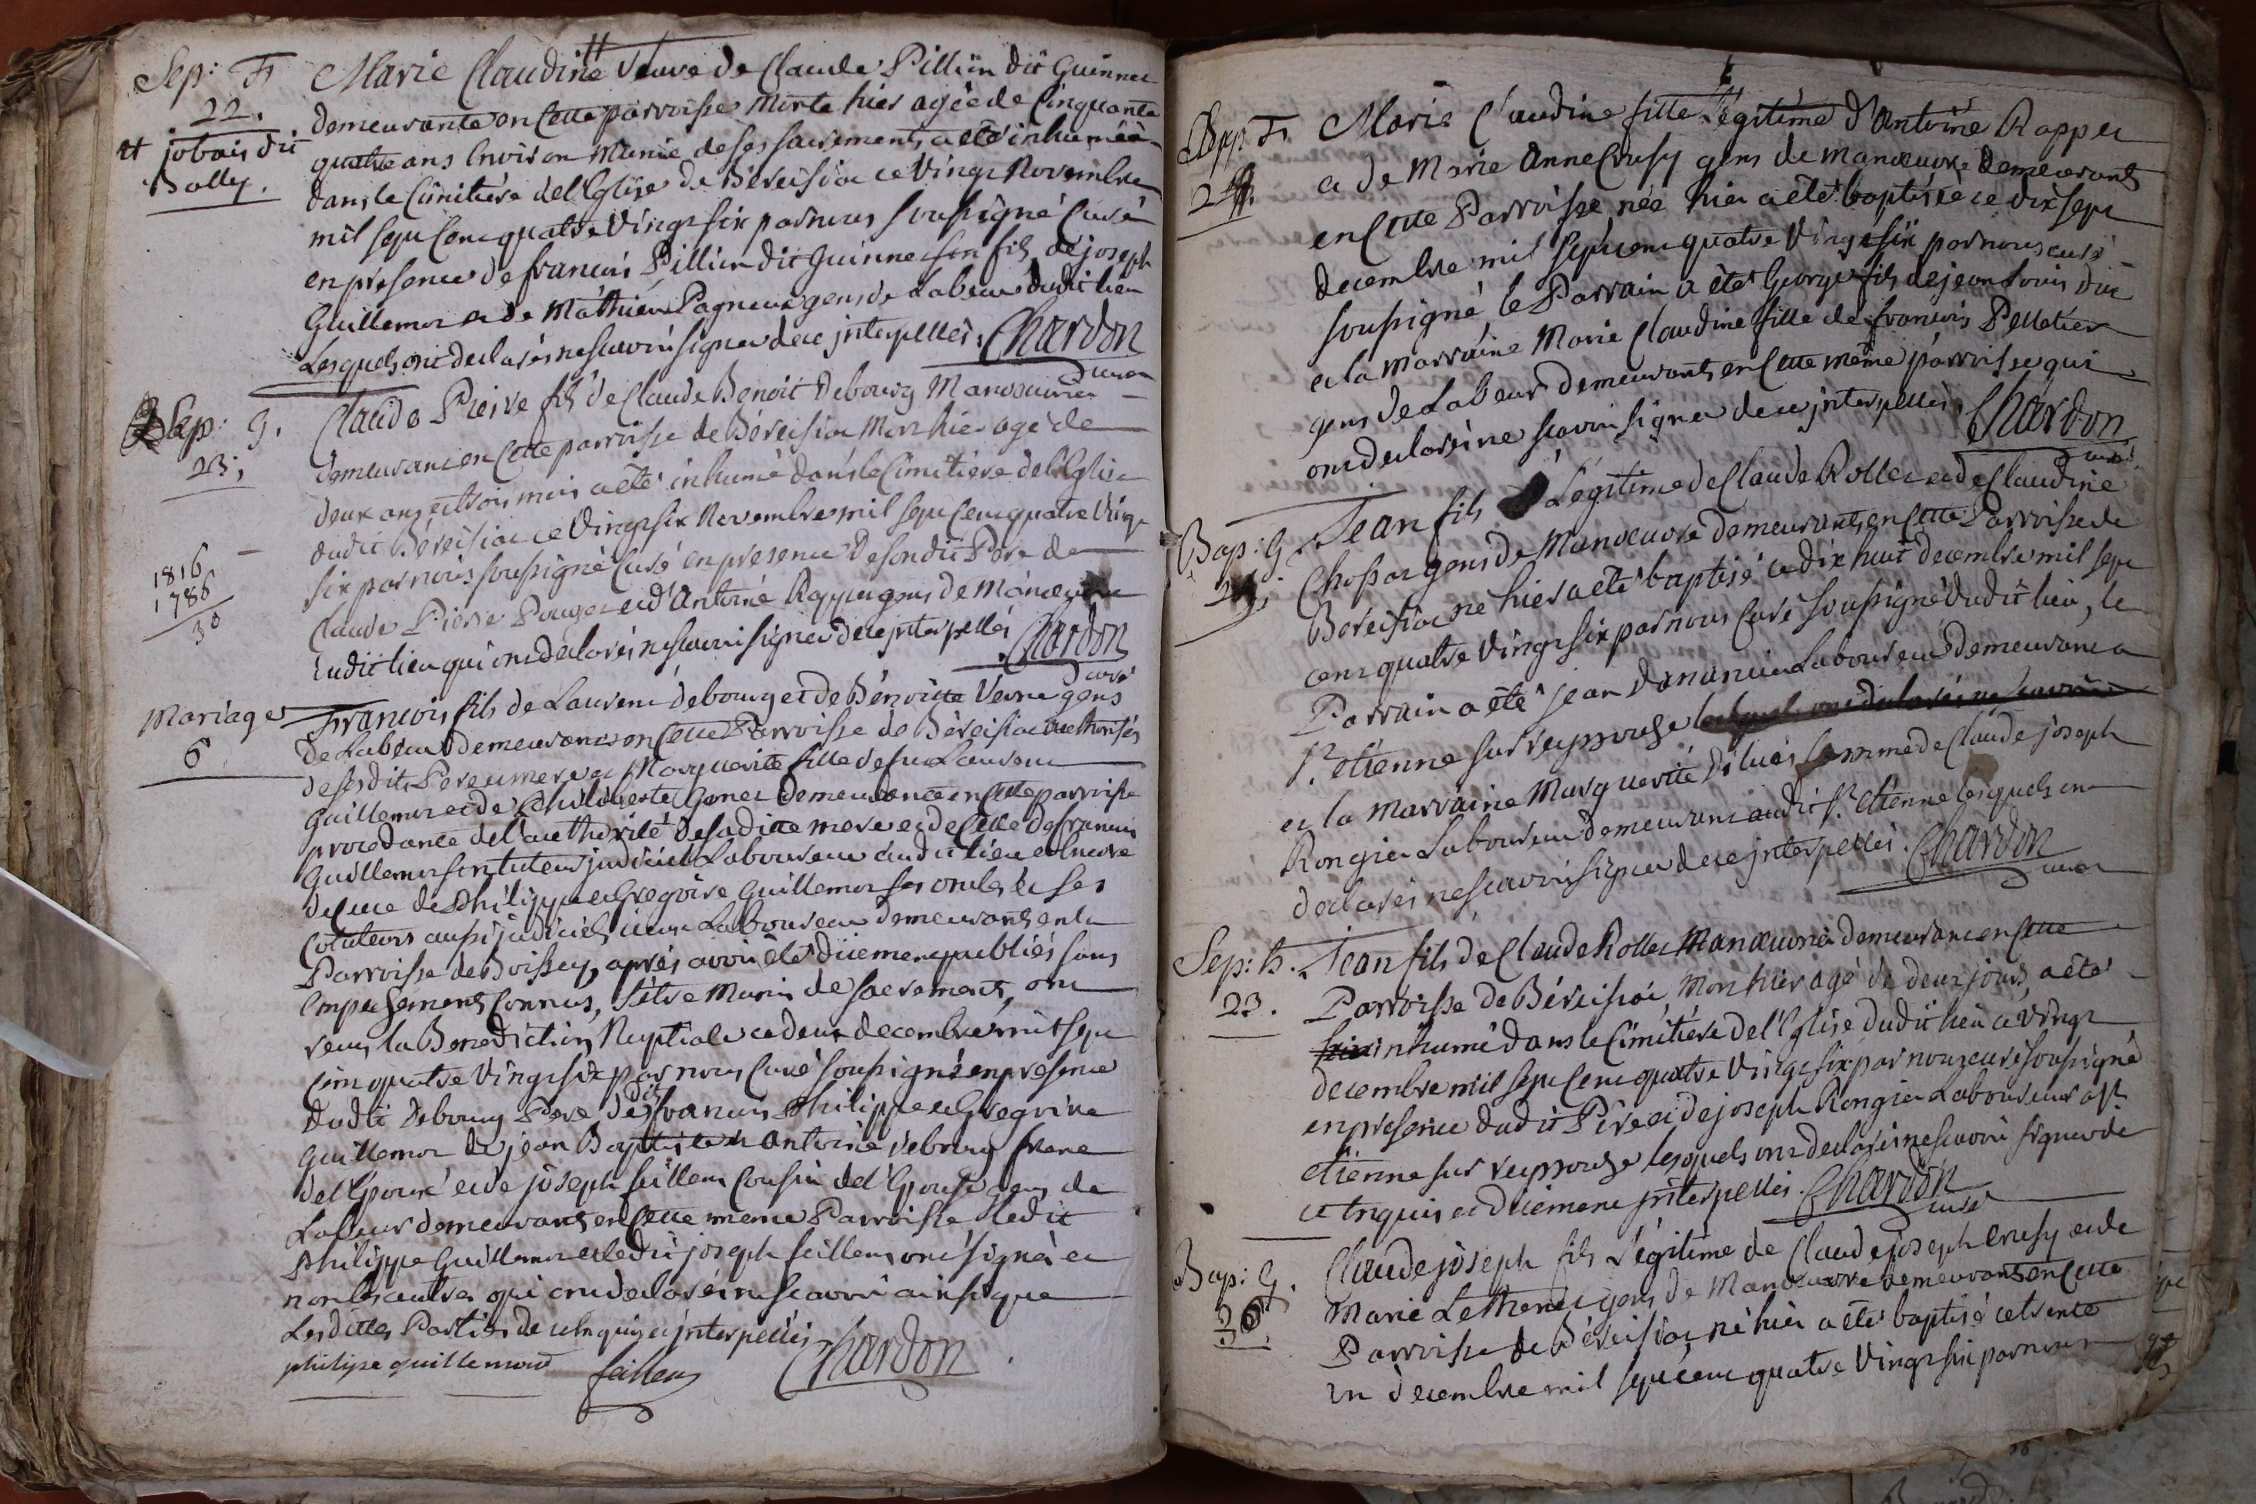 Sep: F
22.
# jobais dit
Bolley.
Marie Claudine # Veuve de Claude Pillion dit Guinner
demeurante en Cette parroisse morte hier agée de Cinquante
quatre ans Environ Munie de ses sacrements a été inhumée
dans le Cimitiére de l'Eglise de Béreisiac ce Vingt Novembre
mil sept Cent quatre Vingt six par nous soussigné Curé
en presence de francois Pillion dit Guinner son fils de joseph
Guillemot et de Mathieu Pagneux gens de Labeur dudit lieu
Lesquels ont declarés ne scavoir signer de ce jnterpellés. Chardon
curé
Sep: g.
23.
1816
1786
30
Claude Pierre fils de Claude Benoit Debourg Manoeuvrier
demeurant en Cette parroisse de Béreisiac Mort hier agé de
deux ans et trois mois a été inhumé dans le Cimitiére de l'Eglise
dudit Béreisiac ce Vingt six Novembre mil sept Cent quatre Vingt
six par nous soussigné Curé en presence de son dit Pere de
Claude Pierre Pouget et d'Antoine Rappet gens de Manoeuvre
dudit lieu qui ont declarés ne scavoir signer de ce jnterpellés Chardon
curé
Mariages
6
francois fils de Laurent debourg et de Bénoitte Veuvre gens
de Labeur demeurants en Cette Parroisse de Béreisiac authorisés
de ses dits Pere et mere et Marguerite fille de feu Laurent
Guillemot et de Philiberte Gonet demeurante en Cette parroisse
procedante de l'authorité de sa ditte mere et de Celle de francois
Guillemot son tuteur judiciel Laboureur dudit lieu et Encore
de Celle de Philippe et Gregoire Guillemot ses oncles et ses
Cotuteurs aussi judiciels iceux Laboureurs demeurants en la
Parroisse de Boissey, aprés avoir été düement publiés sans
Empechements Connus, s'étre Munis de sacrements, ont
recus la Benediction Nuptiale ce deux decembre mil sept
Cent quatre Vingt six par nous Curé soussigné en presence
dudit Debourg Pere desdits francois Philippe et Gregoire
Guillemot de jean Baptiste et Antoine debourg frere
de l'Epoux et de joseph faillem Cousin de l'Epouse gens de
Labeur demeurants en Cette meme Parroisse ledit
Philippe Guillemot et ledit joseph faillem ont signé et
non les autres qui ont declarés ne scavoir ainsi que
Lesdittes Parties de ce Enquis et jnterpellés
philipe guillemoud faillem Chardon
Bap: F.
24.
Marie Claudine fille Légitime d'Antoine Rappet
et de Marie Anne Crusy gens de manoeuvre demeurants
en Cette Parroisse née hier a été baptisée ce dix sept
decembre mil sept cent quatre Vingt six par nous curé
soussigné le Parrain a été George fils de jean Louis duc
et la marraine Marie Claudine fille de francois Pelletier
gens de Labeur demeurants en Cette même parroisse qui
ont declarés ne scavoir signer de ce jnterpellés Chardon
curé
Bap: g.
Jean fils Légitime de Claude Rollet et de Claudine
Chossat gens de Manoeuvre demeurants en Cette Parroisse de
Bereisiac né hier a été baptisé ce dix huit decembre mil sept
cent quatre Vingt six par nous Curé soussigné dudit lieu, le
Parrain a été jean Danancier Laboureur demeurant a
St. étienne sur reyssouze
et la marraine Marguerite femme de Claude joseph
Rongier Laboureur demeurant audit St. étienne lesquels ont
declarés ne scavoir signer de ce jnterpellés. Chardon
curé
Sep: h.
23.
Jean fils de Claude Rollet Manoeuvrier demeurant en Cette
Parroisse de Béreisiac Mort hier agé de deux jours a été
inhumé dans le Cimitiére de l'Eglise dudit lieu ce Vingt
decembre mil sept Cent quatre Vingt six par nous curé soussigné
en presence dudit Pere et de joseph Rongier Laboureur a St.
étienne sur reyssouze lesquels ont declarés ne scavoir signer de
ce Enquis et düement jnterpellés. Chardon
curé
Bap: g.
30.
Claude joseph fils Légitime de Claude joseph Crusy et de
Marie Lethenet gens de Manoeuvre demeurants en Cette
Parroisse de Béreisiac, né hier a été baptisé ce trente
un decembre mil sept cent quatre Vingt six par nous